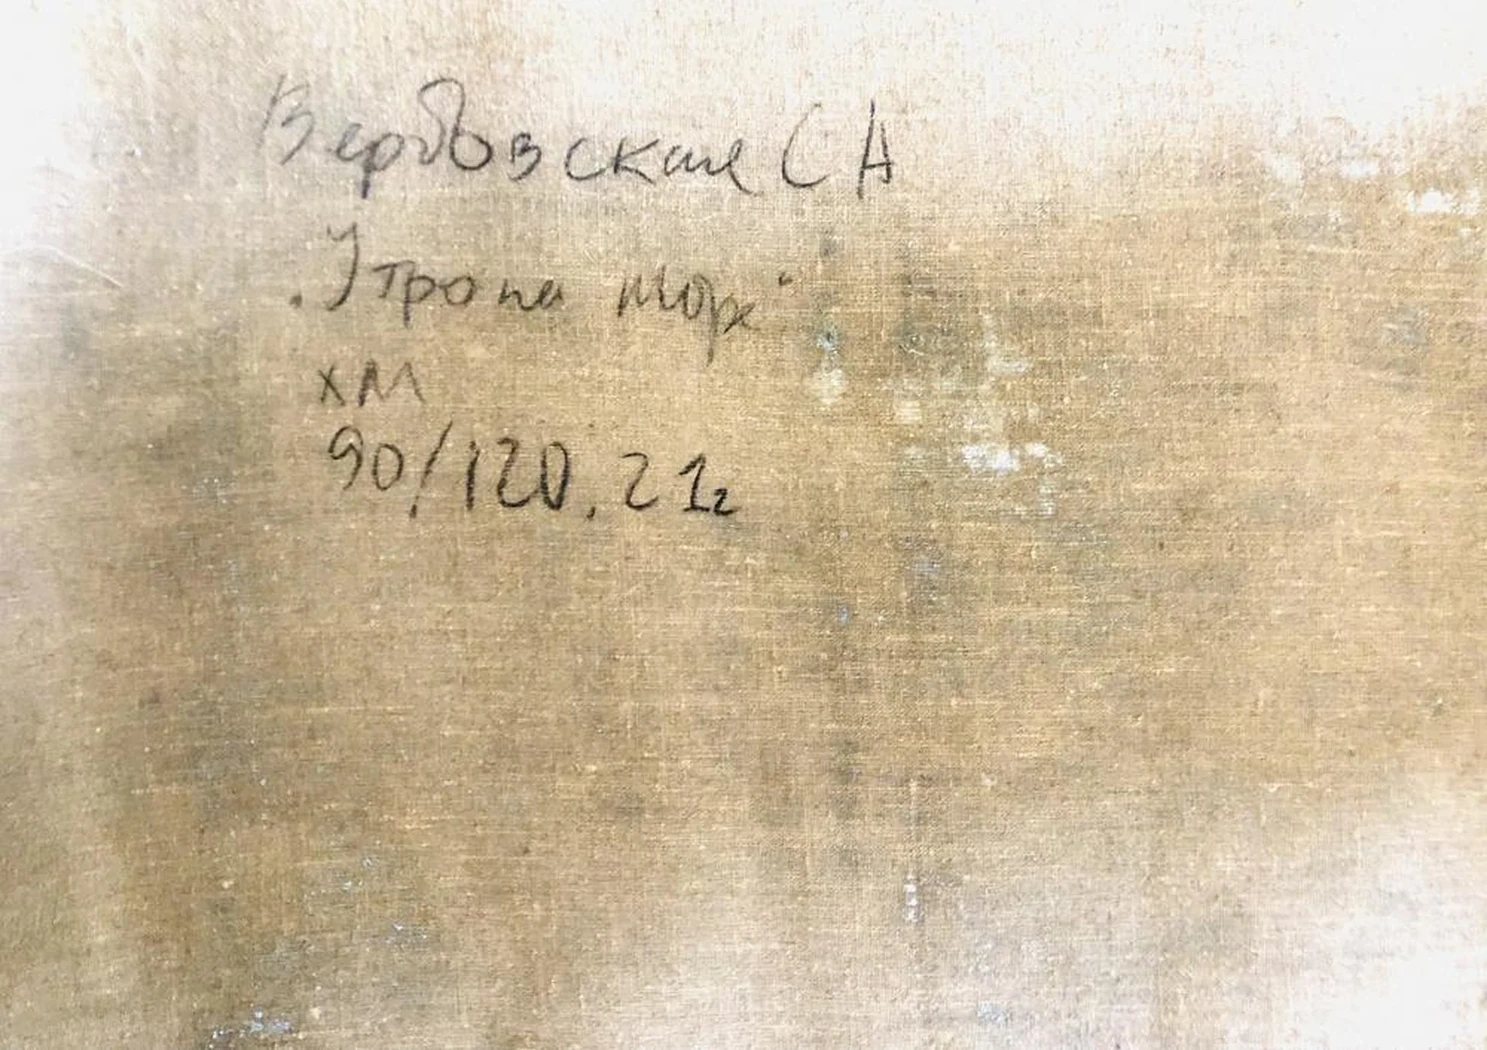 Вербовская С А
"Утро на море"
хм
90/120, 21г